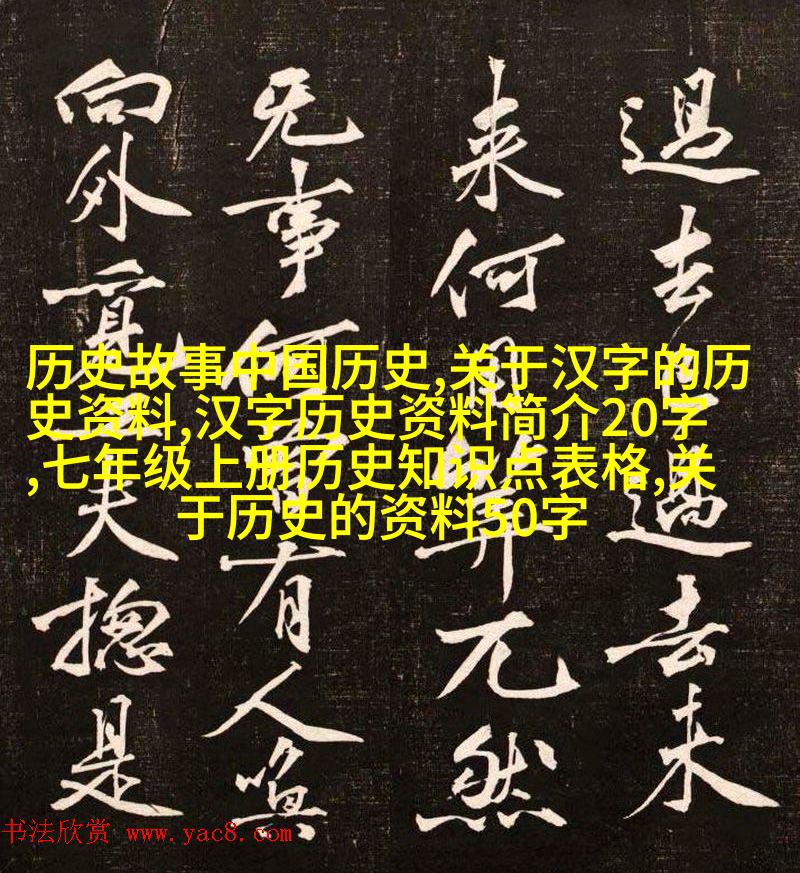 過去過去未
来何用筭兀然
无事何有人喚
向外覓夫揔是
历史故事中国历史,关于汉字的历
史资料,汉字历史资料简介20字
,七年级上册历史知识点表格,关
于历史的资料50字
书法欣赏 www.yac8.com